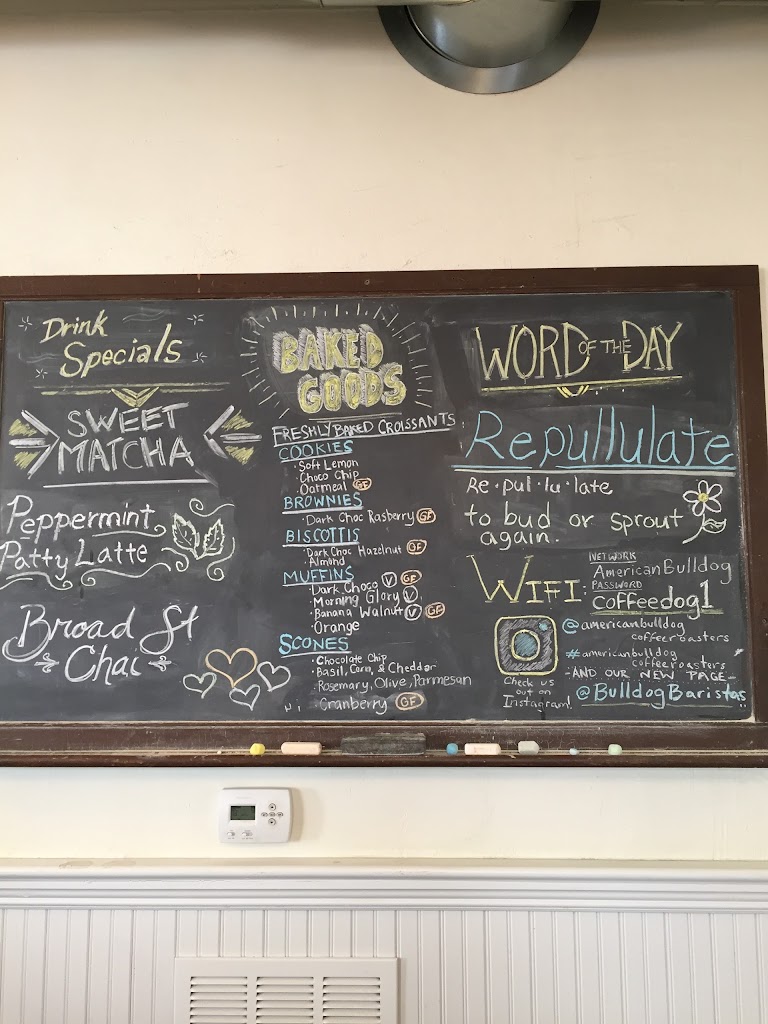 Drink
Specials
SWEET
MATCHA
Peppermint
Patty Latte
Broad St
Chai
BAKED
GOODS
FRESHLY BAKED CROISSANTS
COOKIES
· Soft Lemon
· Choco Chip
· Oatmeal GF
BROWNIES
· Dark Choc Rasberry GF
BISCOTTIS
· Dark Choc Hazelnut GF
· Almond
MUFFINS
· Dark Choco V GF
· Morning Glory V
· Banana Walnut V GF
· Orange
SCONES
· Chocolate Chip
· Basil, Corn, & Cheddar
· Rosemary, Olive, Parmesan
· Cranberry GF
Hi
WORD OF THE DAY
Repullulate
Re·pul·lu·late
to bud or sprout
again.
WIFI:
NETWORK
AmericanBulldog
PASSWORD
coffeedog1
@americanbulldog
coffeeroasters
#americanbulldog
coffeeroasters
-AND OUR NEW PAGE-
@BulldogBaristas
Check us
out on
Instagram!